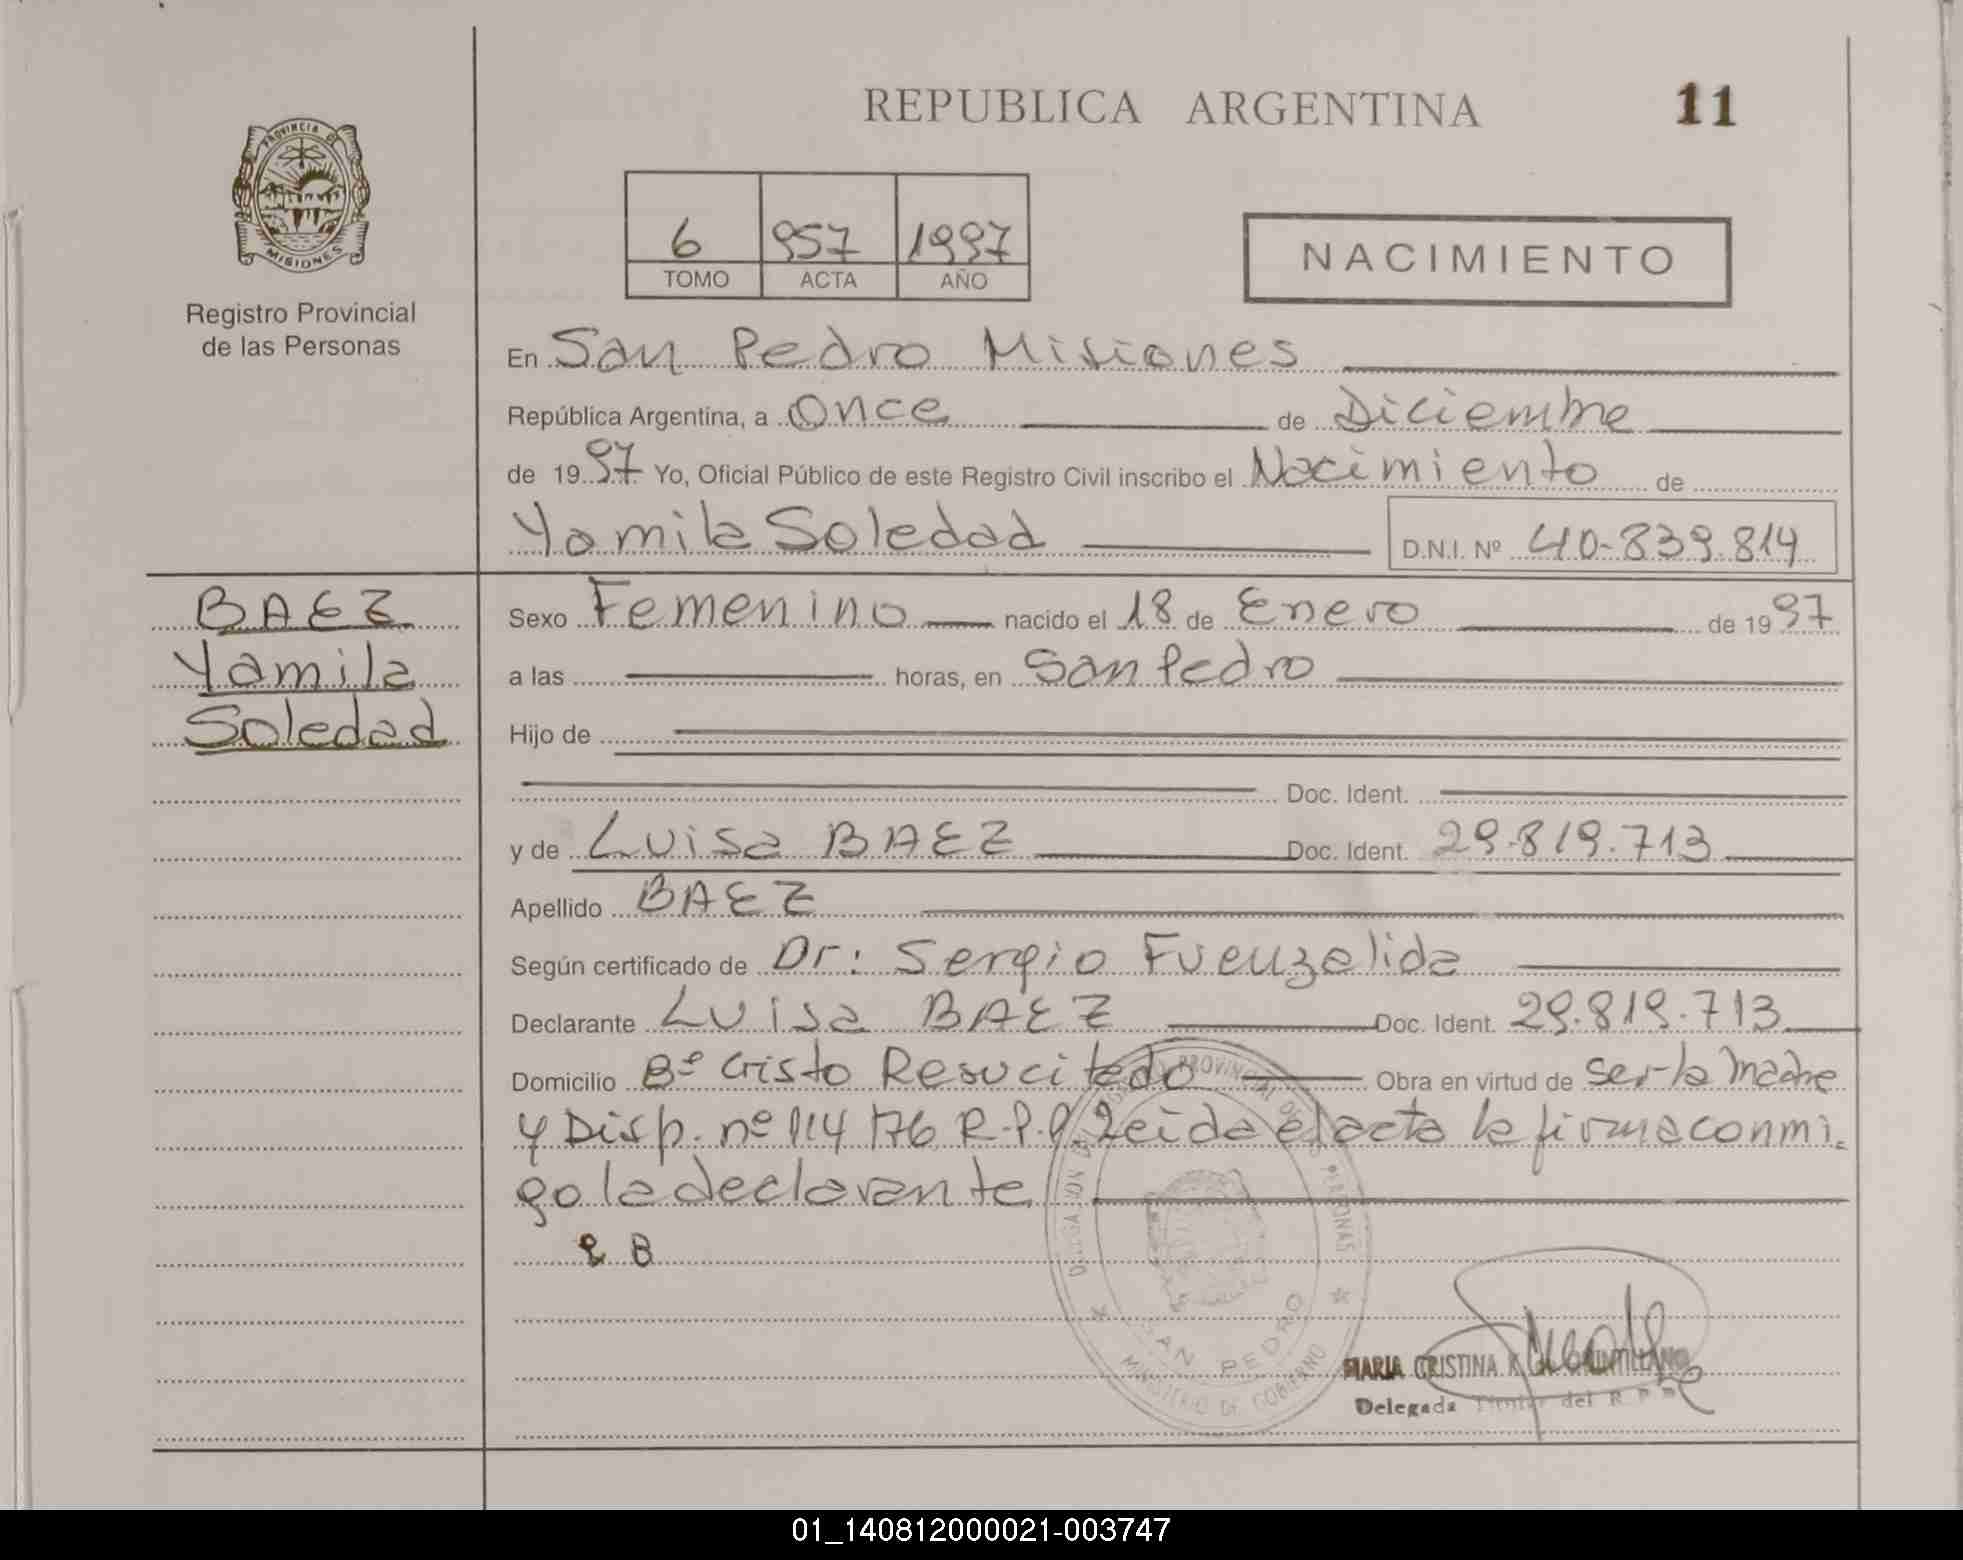 REPUBLICA ARGENTINA
11
PROVINCIA DE
MISIONES
Registro Provincial
de las Personas
6 957 1997
TOMO ACTA AÑO
NACIMIENTO
En San Pedro Misiones
República Argentina, a Once de Diciembre
de 1997 Yo, Oficial Público de este Registro Civil inscribo el Nacimiento de
Yamila Soledad D.N.I. Nº 40-839.814
BAEZ
Yamila
Soledad
Sexo Femenino nacido el 18 de Enero de 1997
a las horas, en San Pedro
Hijo de
Doc. Ident.
y de Luisa BAEZ Doc. Ident. 29.819.713
Apellido BAEZ
Según certificado de Dr: Sergio Fuenzalida
Declarante Luisa BAEZ Doc. Ident. 29.819.713
Domicilio Bº Cristo Resucitado Obra en virtud de ser la madre
y Disp. nº 114/76 R.P.P. Leida el acta la firma conmi
go la declarante
B
DELEGACION DEL REGISTRO PROVINCIAL DE LAS PERSONAS
SAN PEDRO
MINISTERIO DE GOBIERNO
MARIA CRISTINA QUINTILLANO
Delegada Titular del R P P
01_140812000021-003747